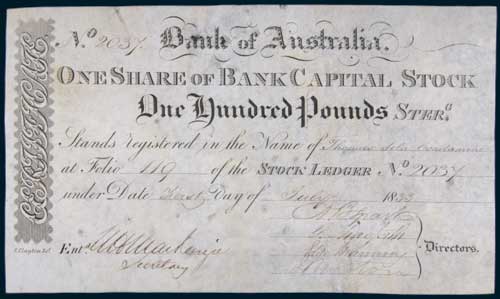 CERTIFICATE
No 2037. Bank of Australia.
ONE SHARE OF BANK CAPITAL STOCK
One Hundred Pounds STERG
Stands registered in the Name of Thomas
at Folio 119 of the STOCK LEDGER No 2037
under Date First Day of 1833
Directors.
Ent
Secretary